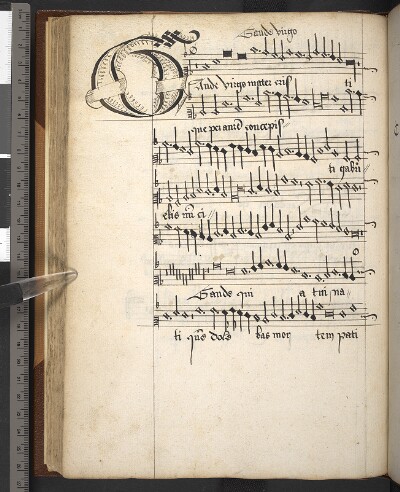 Gaude virgo
Gaude virgo mater cris ti
que per aurē concepis
ti gabri
elis nū ci
Gaude qui a tui na
ti quē dole bas mor tem pati